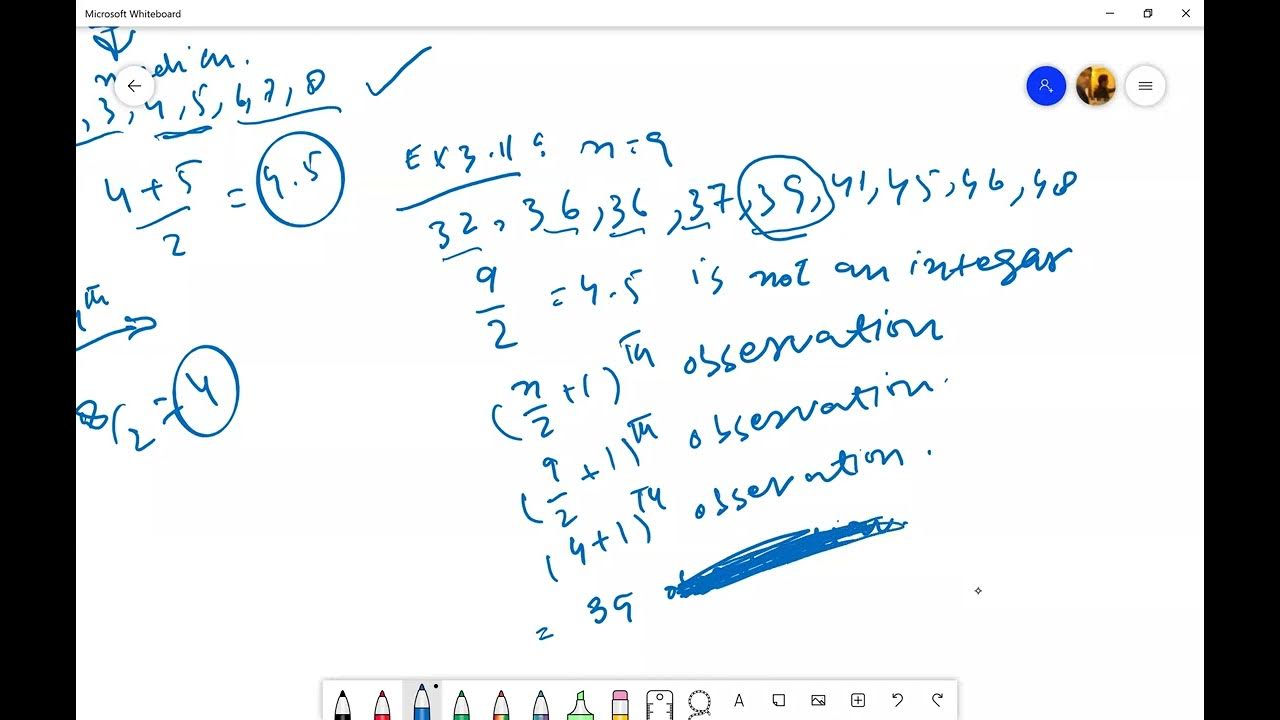 Microsoft Whiteboard
median.
, 3, 4, 5, 6, 7, 8 ✓
4 + 5 / 2 = 4.5
th
8/2 = 4
Ex 3.11: n = 9
32, 36, 36, 37, 39, 41, 45, 46, 48
9/2 = 4.5 is not an integer
(n/2 + 1)th observation
(9/2 + 1)th observation.
(4+1)th observation.
= 39
A